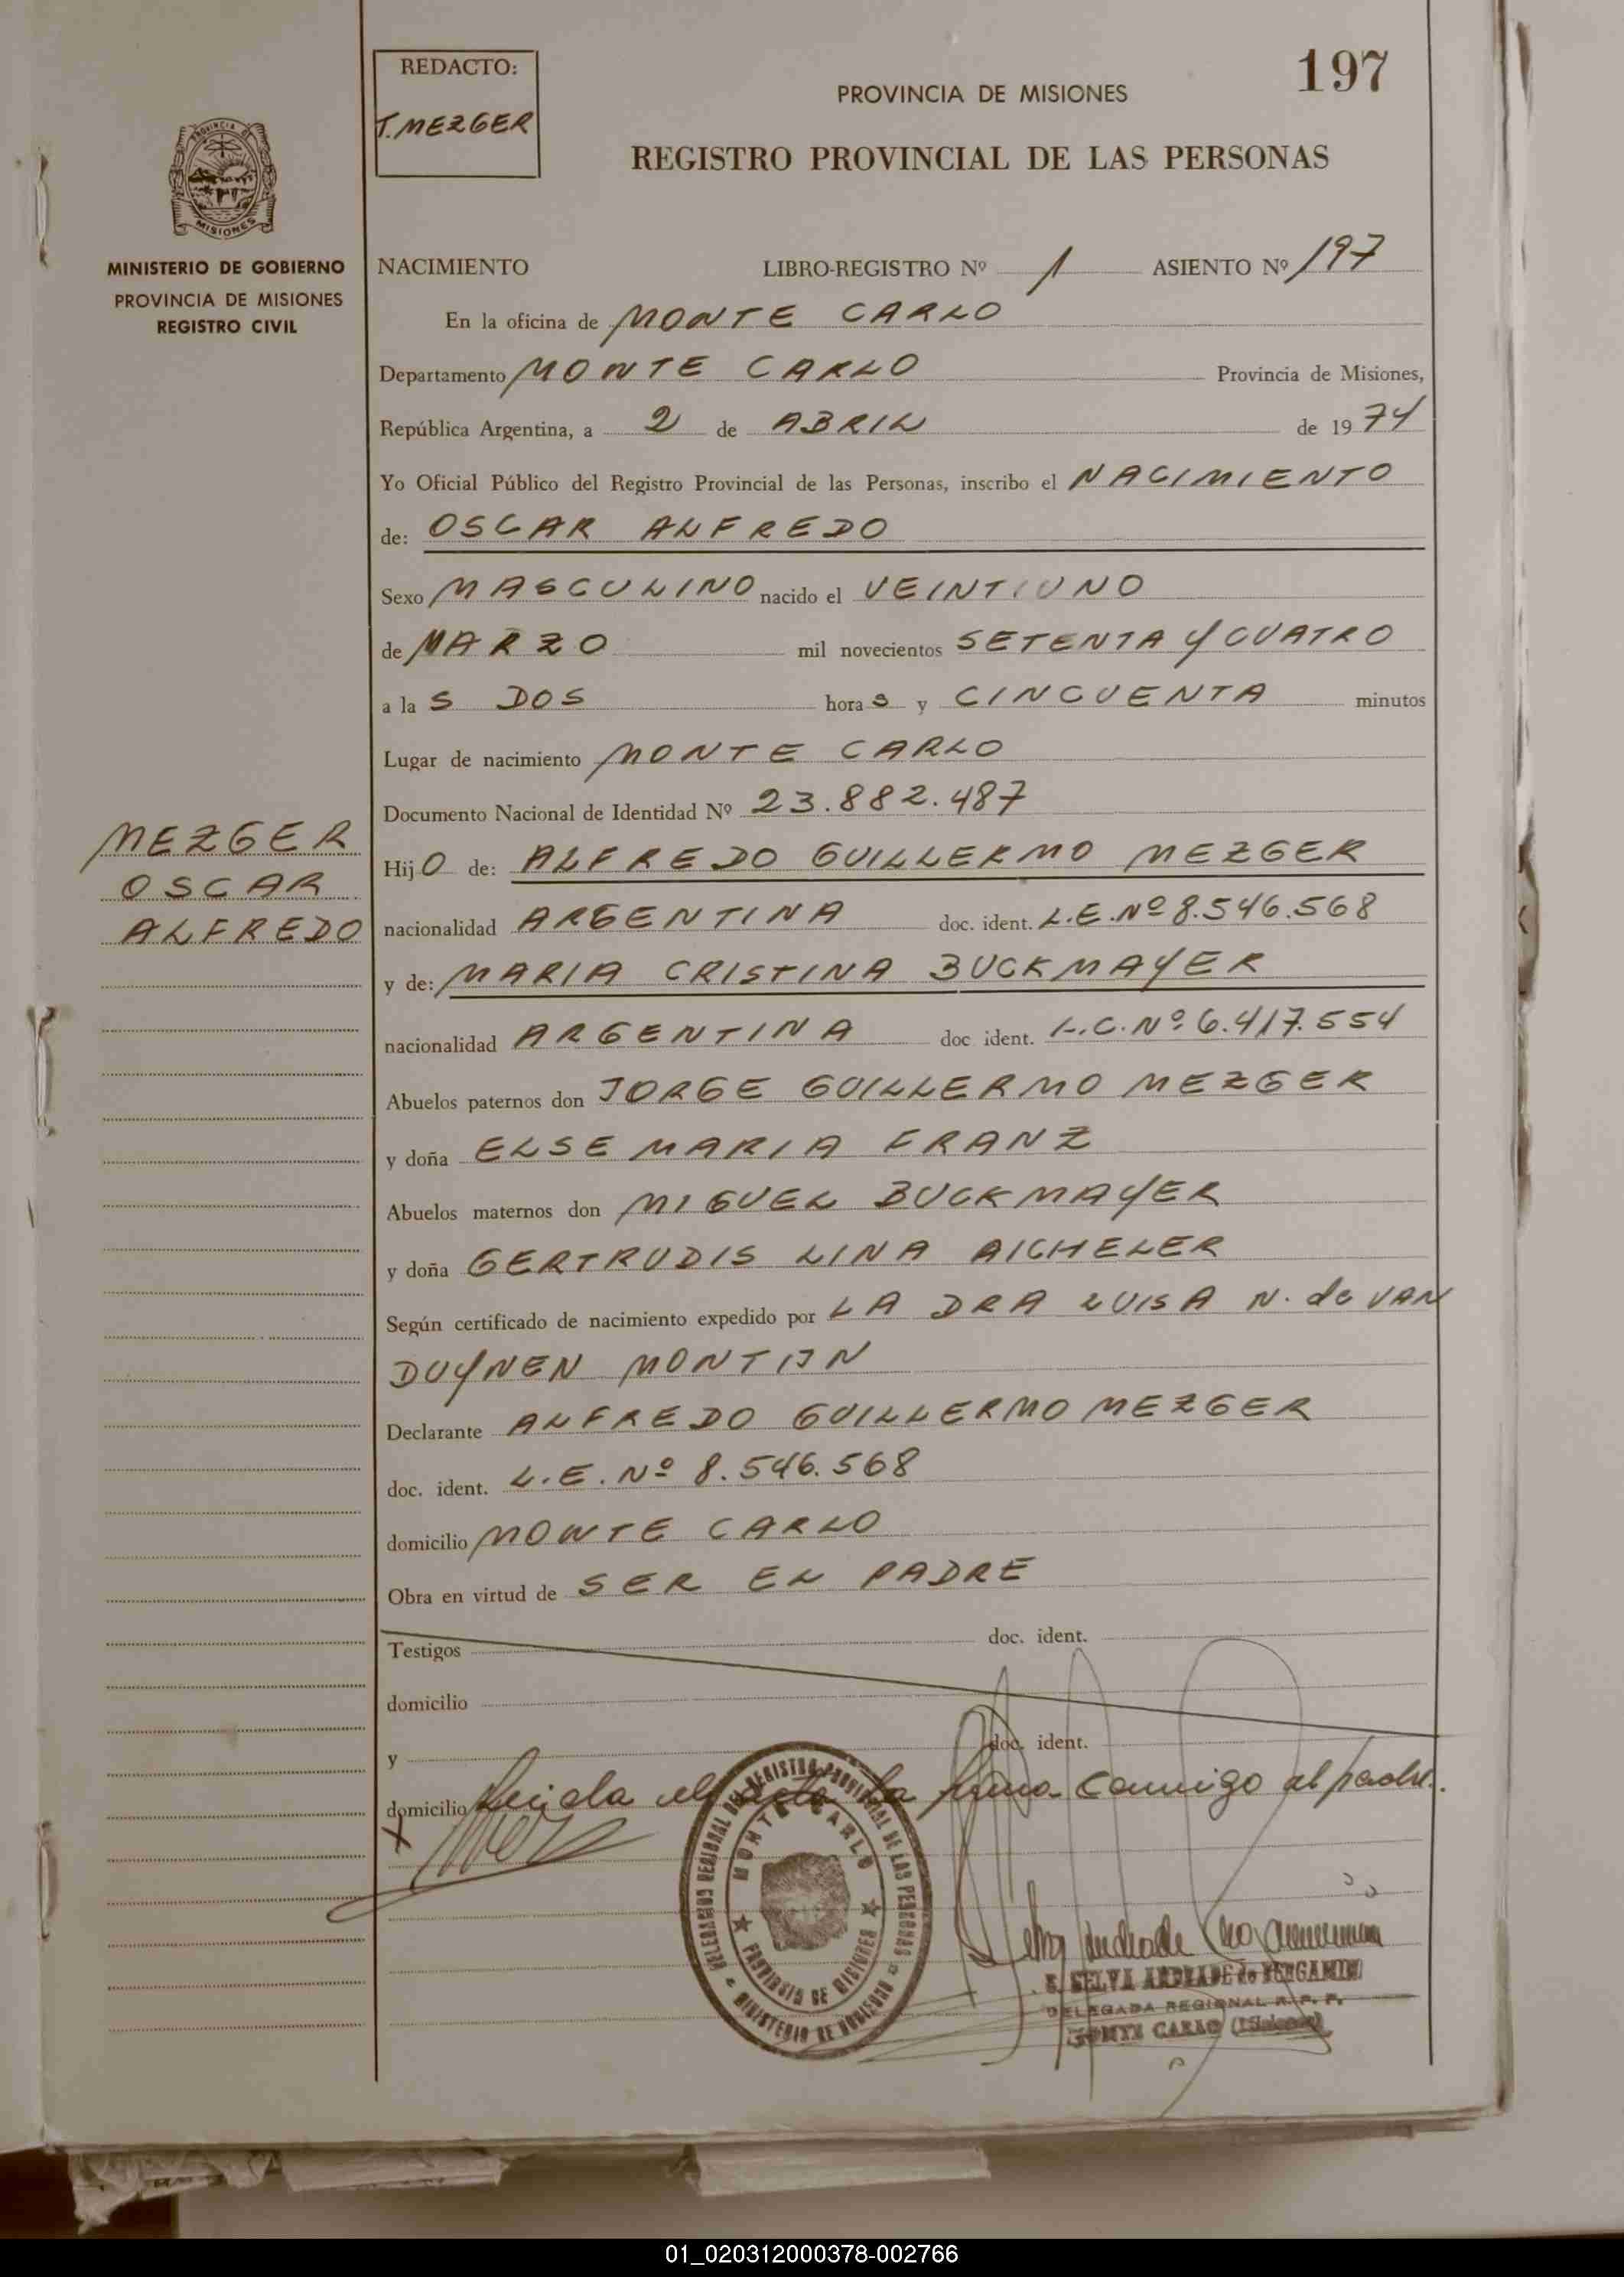 REDACTO:
T. MEZGER
197
PROVINCIA DE MISIONES
REGISTRO PROVINCIAL DE LAS PERSONAS
PROVINCIA DE
MISIONES
MINISTERIO DE GOBIERNO
PROVINCIA DE MISIONES
REGISTRO CIVIL
NACIMIENTO LIBRO-REGISTRO Nº 1 ASIENTO Nº 197
En la oficina de MONTE CARLO
Departamento MONTE CARLO Provincia de Misiones,
República Argentina, a 2 de ABRIL de 1974
Yo Oficial Público del Registro Provincial de las Personas, inscribo el NACIMIENTO
de: OSCAR ALFREDO
Sexo MASCULINO nacido el VEINTIUNO
de MARZO mil novecientos SETENTA Y CUATRO
a la S DOS hora S y CINCUENTA minutos
Lugar de nacimiento MONTE CARLO
Documento Nacional de Identidad Nº 23.882.487
MEZGER
OSCAR
ALFREDO
Hij O de: ALFREDO GUILLERMO MEZGER
nacionalidad ARGENTINA doc. ident. L.E.Nº 8.546.568
y de: MARIA CRISTINA BUCKMAYER
nacionalidad ARGENTINA doc ident. L.C.Nº 6.417.554
Abuelos paternos don JORGE GUILLERMO MEZGER
y doña ELSE MARIA FRANZ
Abuelos maternos don MIGUEL BUCKMAYER
y doña GERTRUDIS LINA AICHELER
Según certificado de nacimiento expedido por LA DRA LUISA N. de VAN
DUYNEN MONTIJN
Declarante ALFREDO GUILLERMO MEZGER
doc. ident. L.E. Nº 8.546.568
domicilio MONTE CARLO
Obra en virtud de SER EL PADRE
Testigos doc. ident.
domicilio
y doc. ident.
domicilio Leída el acta la firma conmigo el padre.
X
DELEGACION REGIONAL DEL REGISTRO PROVINCIAL DE LAS PERSONAS
MINISTERIO DE GOBIERNO
MONTE CARLO
PROVINCIA DE MISIONES
SELVA ANDRADE de BERGAMIN
DELEGADA REGIONAL R. P. P.
MONTE CARLO (Misiones)
01_020312000378-002766